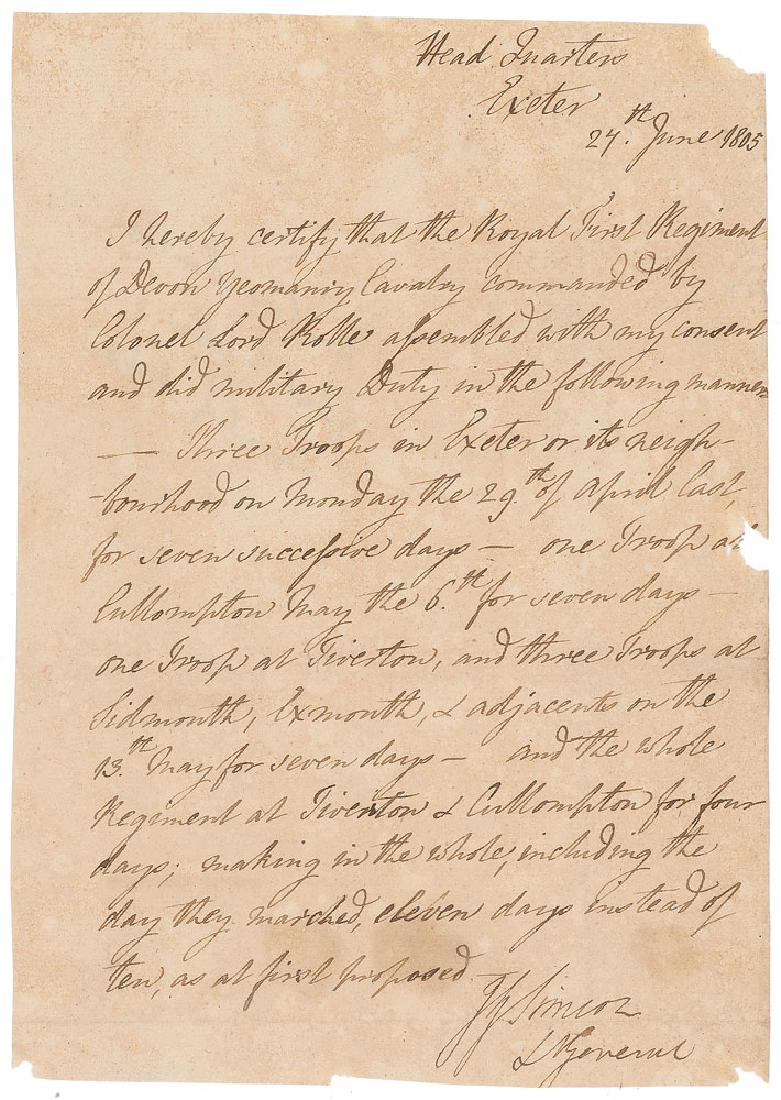 Head Quarters
Exeter
27.th June 1805
I hereby certify that the Royal First Regiment
of Devon Yeomanry Cavalry commanded by
Colonel Lord Rolle assembled with my consent
and did military Duty in the following manner
— Three Troops in Exeter or its neigh-
-bourhood on Monday the 29.th of April last,
for seven successive days — one Troop at
Cullompton May the 6.th for seven days —
one Troop at Tiverton, and three Troops at
Sidmouth, Exmouth, & adjacents on the
13.th May for seven days — and the whole
Regiment at Tiverton & Cullompton for four
days; making in the whole, including the
day they marched, eleven days instead of
ten, as at first proposed
JG Simcoe
Lt General